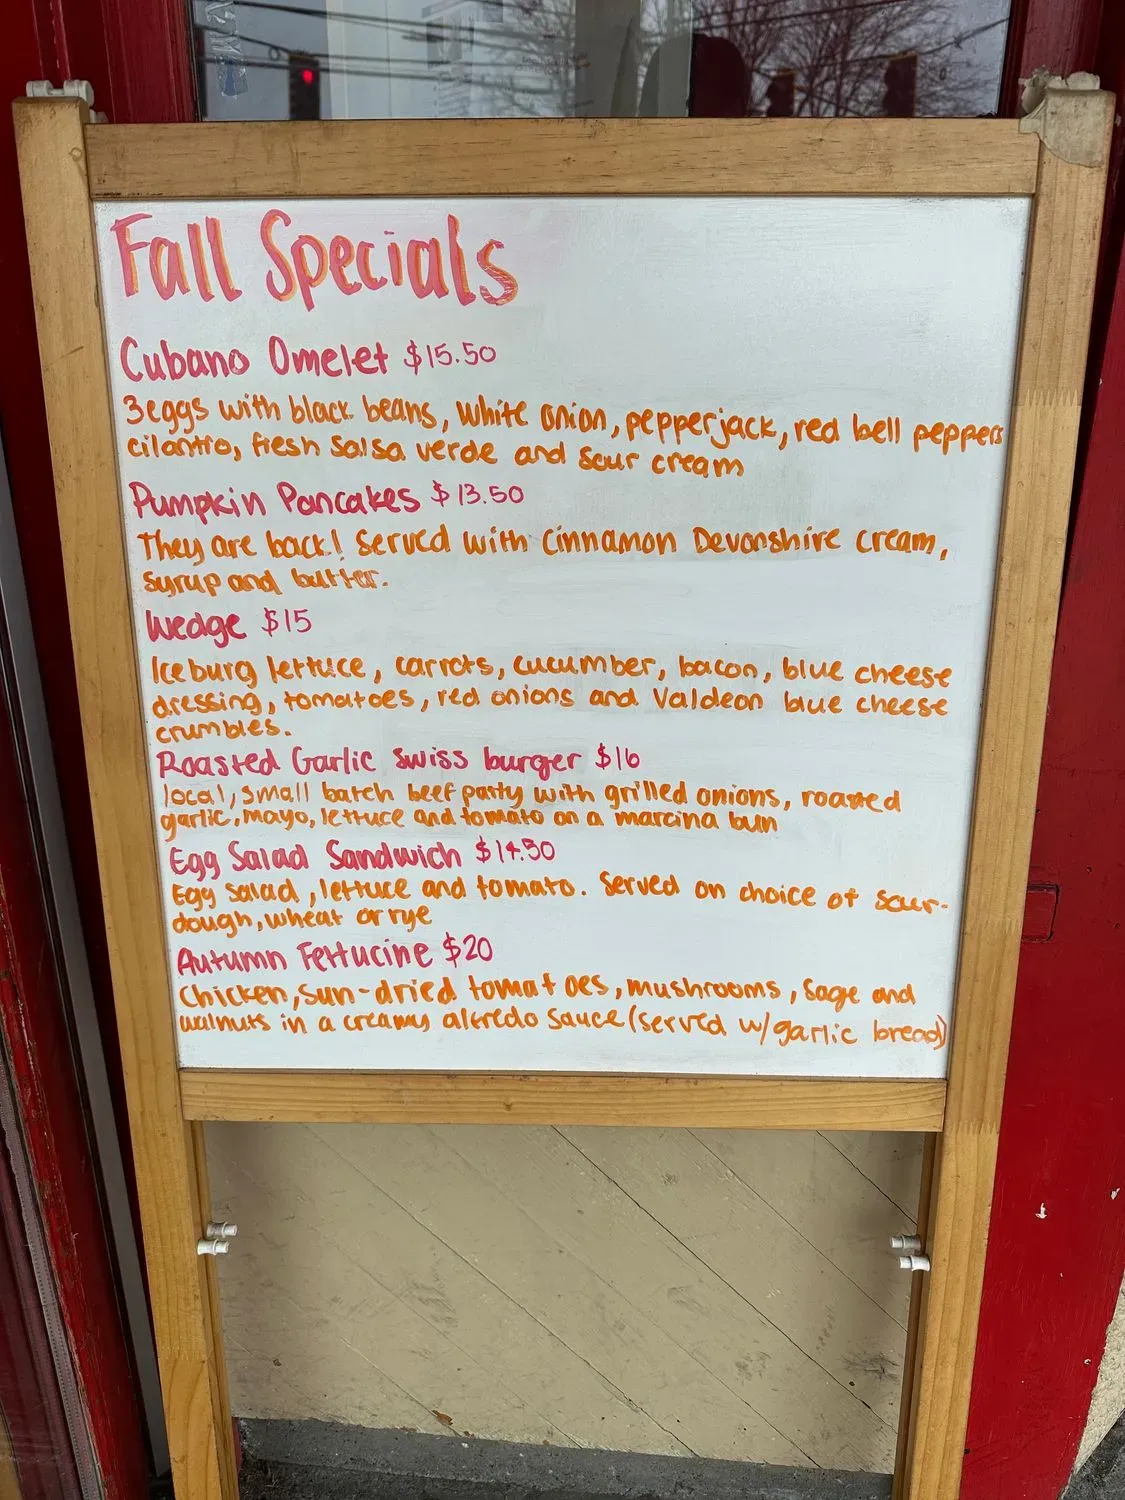 Fall Specials
Cubano Omelet $15.50
3eggs with black beans, white onion, pepperjack, red bell peppers
cilantro, fresh salsa verde and sour cream
Pumpkin Pancakes $13.50
They are back! Served with Cinnamon Devonshire cream,
syrup and butter.
Wedge $15
Iceburg lettuce, carrots, cucumber, bacon, blue cheese
dressing, tomatoes, red onions and Valdeon blue cheese
crumbles.
Roasted Garlic Swiss burger $16
local, small batch beef patty with grilled onions, roasted
garlic, mayo, lettuce and tomato on a marcina bun
Egg Salad Sandwich $14.50
Egg salad, lettuce and tomato. Served on choice of sour-
dough, wheat or rye
Autumn Fettucine $20
Chicken, sun-dried tomatoes, mushrooms, sage and
walnuts in a creamy alfredo sauce (served w/garlic bread)